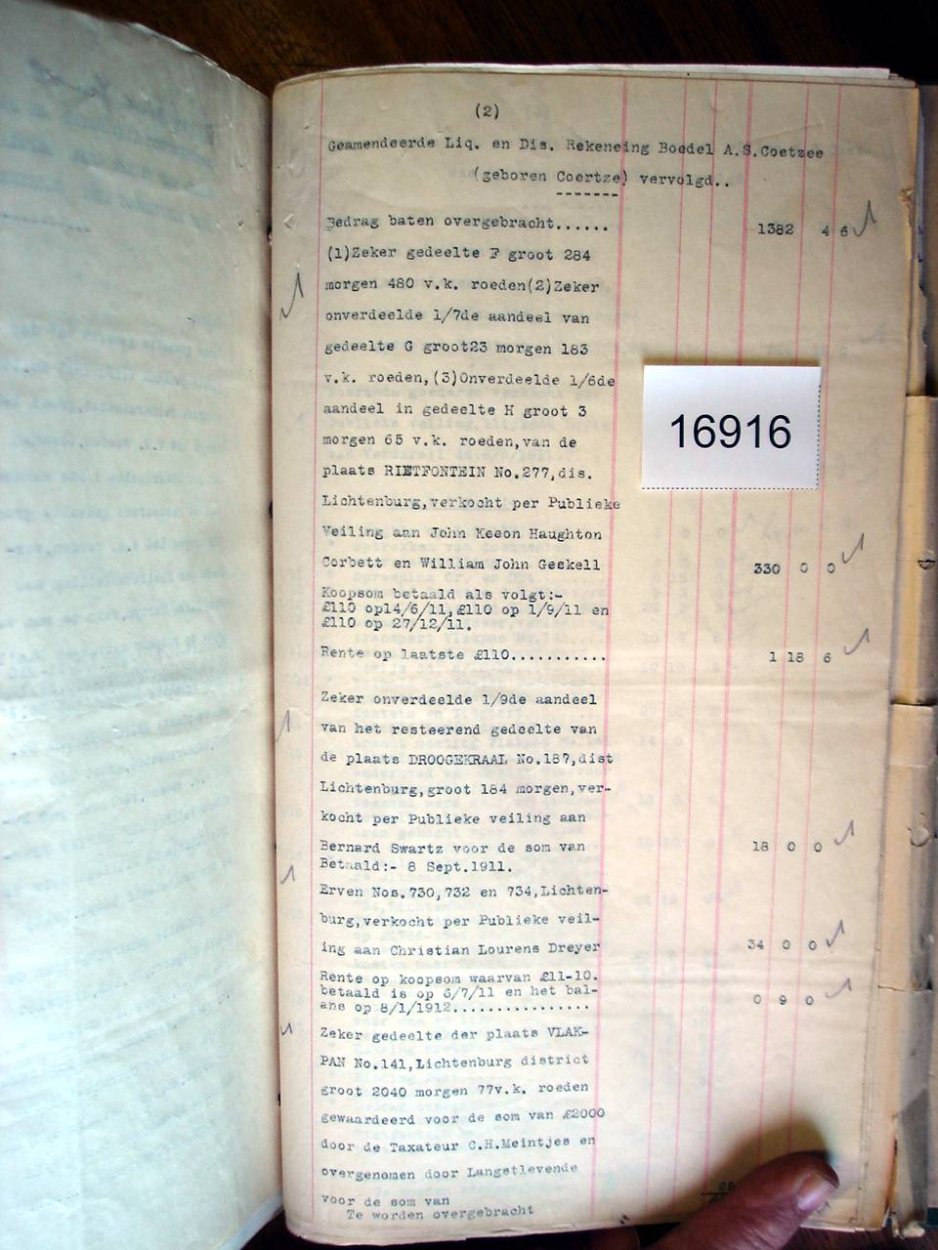 (2)
Geamendeerde Liq. en Dis. Rekeneing Boedel A.S.Coetzee
(geboren Coertze) vervolgd..
Bedrag baten overgebracht...... 1382 4 6
(1)Zeker gedeelte F groot 284
morgen 480 v.k. roeden(2)Zeker
onverdeelde 1/7de aandeel van
gedeelte G groot23 morgen 183
v.k. roeden,(3)Onverdeelde 1/6de
aandeel in gedeelte H groot 3
morgen 65 v.k. roeden,van de
plaats RIETFONTEIN No.277,dis.
Lichtenburg,verkocht per Publieke
Veiling aan John Keeon Haughton
Corbett en William John Geskell 330 0 0
Koopsom betaald als volgt:-
£110 op14/6/11,£110 op 1/9/11 en
£110 op 27/12/11.
Rente op laatste £110........... 1 18 6
Zeker onverdeelde 1/9de aandeel
van het resteerend gedeelte van
de plaats DROOGEKRAAL No.187,dist
Lichtenburg,groot 184 morgen,ver-
kocht per Publieke veiling aan
Bernard Swartz voor de som van 18 0 0
Betaald:- 8 Sept.1911.
Erven Nos.730,732 en 734,Lichten-
burg,verkocht per Publieke veil-
ing aan Christian Lourens Dreyer 34 0 0
Rente op koopsom waarvan £11-10.
betaald is op 6/7/11 en het bal-
ans op 8/1/1912................ 0 9 0
Zeker gedeelte der plaats VLAK-
PAN No.141,Lichtenburg district
groot 2040 morgen 77v.k. roeden
gewaardeerd voor de som van £2000
door de Taxateur C.H.Meintjes en
overgenomen door Langstlevende
voor de som van
Te worden overgebracht
16916